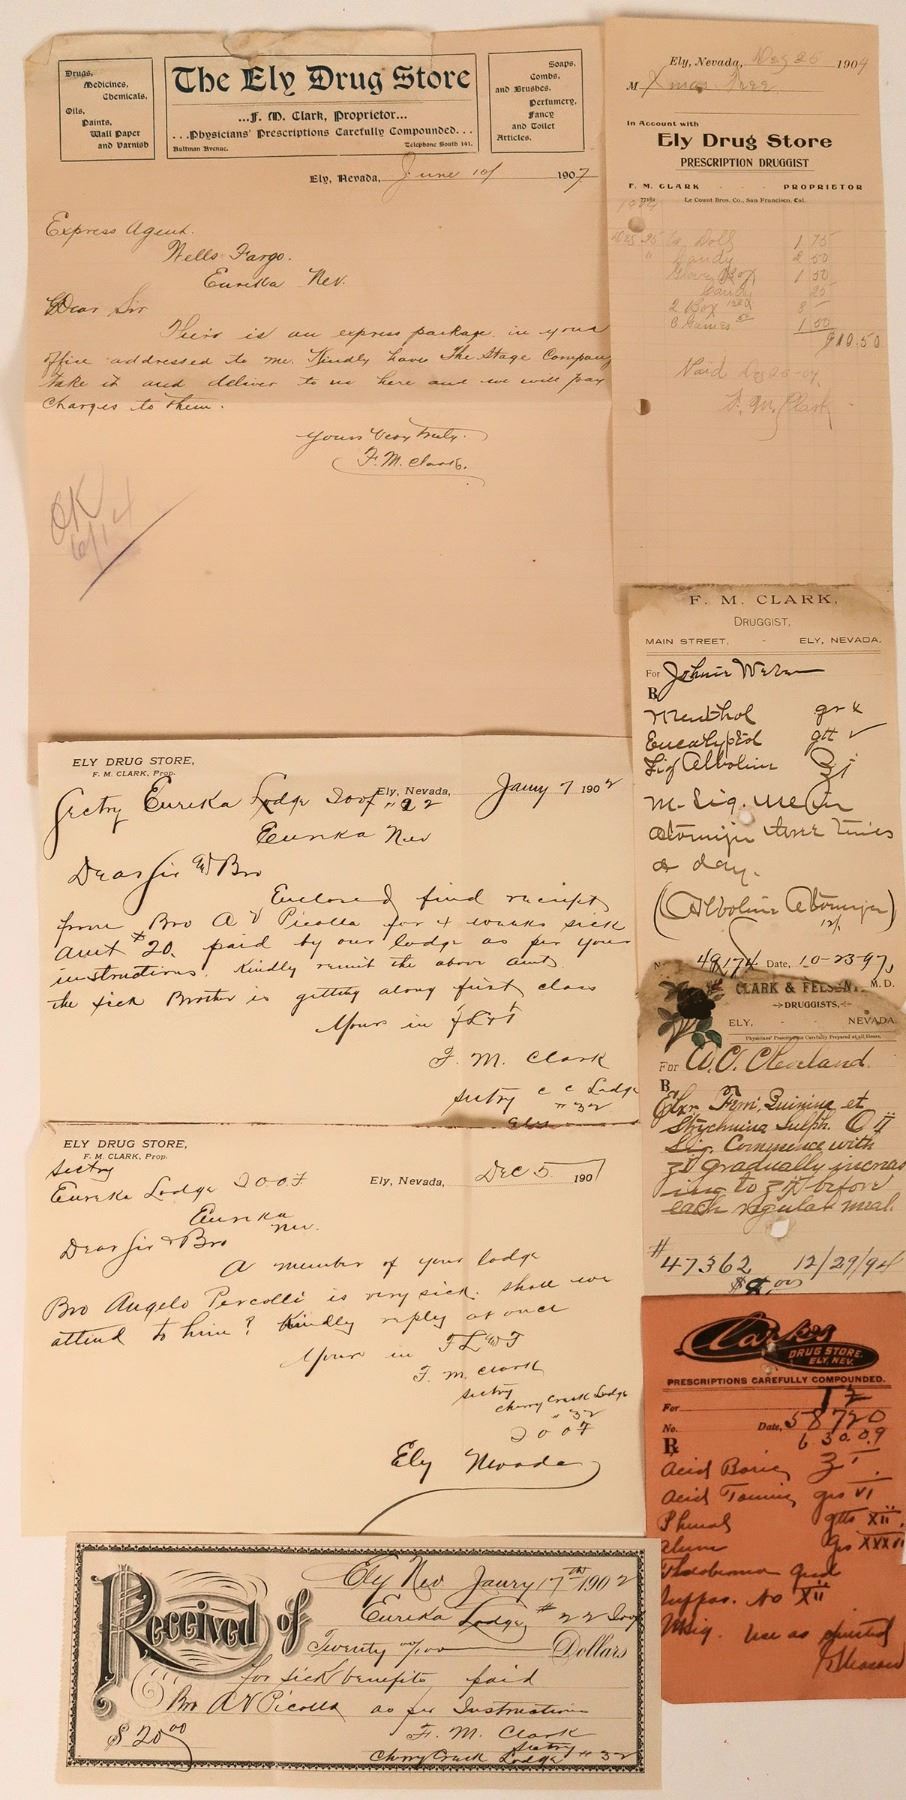 Drugs,
Medicines,
Chemicals,
Oils,
Paints,
Wall Paper
and Varnish
The Ely Drug Store
...F. M. Clark, Proprietor...
...Physicians' Prescriptions Carefully Compounded...
Aultman Avenue.
Telephone South 141.
Soaps,
Combs,
and Brushes.
Perfumery,
Fancy
and Toilet
Articles.
Ely, Nevada, June 10/ 1907
Express Agent.
Wells Fargo.
Eureka Nev.
Dear Sir
Their is an express package in your
office addressed to me. Kindly have The Stage Company
take it and deliver to us here and we will pay
charges to them.
Yours Very Truly.
F. M. Clark.
OK
6/14
Ely, Nevada, Dec 25 1904
M Xmas Tree
In Account with
Ely Drug Store
PRESCRIPTION DRUGGIST
F. M. CLARK - - PROPRIETOR
Le Count Bros. Co., San Francisco, Cal.
1904
25 Doll 1 75
" Candy 2 50
Glove Box 1 50
Candy 25
2 Box
6 Games 1 50
$10.50
Paid Dec 25-04
F. M. Clark
F. M. CLARK,
DRUGGIST,
MAIN STREET, - ELY, NEVADA.
For Johnie Weber
R
Menthol gr x
Eucalyptol gtt v
Liq Alboline ℥j
M. Sig. Use in
atomizer three times
a day.
(Alboline Atomizer)
No. 48174 Date, 10-23-97
M. D.
CLARK & FELSEN
DRUGGISTS,
ELY, - - NEVADA.
Physicians' Prescriptions Carefully Prepared at all Hours.
For A. C. Cleveland.
R
Elix. Ferri, Quinina et
Strychnina Sulph. O ii
Sig. Commence with
ʒi gradually increas
ing to ʒii before
each regular meal.
# 47362 12/29/94
ELY DRUG STORE,
F. M. CLARK, Prop.
Ely, Nevada, Jany 7 1902
Sectry Eureka Lodge IOOF #22
Eureka Nev
Dear Sir & Bro
Enclosed find receipt
from Bro A V Picolla for 4 weeks sick
Amt $20. paid by our lodge as per your
instructions. Kindly remit the above amt.
the sick Brother is getting along first class
Yours in F L & T
F. M. Clark
Sectry C C Lodge
# 32
ELY DRUG STORE,
F. M. CLARK, Prop.
Ely, Nevada, Dec 5 1901
Sectry
Eureka Lodge IOOF
Eureka
Nev.
Dear Sir & Bro
A member of your lodge
Bro Angelo Percolli is very sick. Shall we
attend to him? Kindly reply at once
Yours in F L & T
F. M. Clark
Sectry
Cherry Creek Lodge
# 32
IOOF
Ely Nevada
Clarkes
DRUG STORE,
ELY, NEV.
PRESCRIPTIONS CAREFULLY COMPOUNDED.
For
No. Date, 58720
R 6 30.09
Acid Boric ʒ i
Acid Tannic grs VI
Phenol gtts XII
Alum grs XXX
Theobroma qsad
Suppos. No XII
M Sig. Use as directed
Received of
Ely Nev Jany 17th 1902
Eureka Lodge # 22 IOOF
Twenty 00/100 Dollars
for sick benefits paid
Bro A V Picolla as per Instructions
$ 20.00
F. M. Clark
Sectry
Cherry Creek Lodge # 32